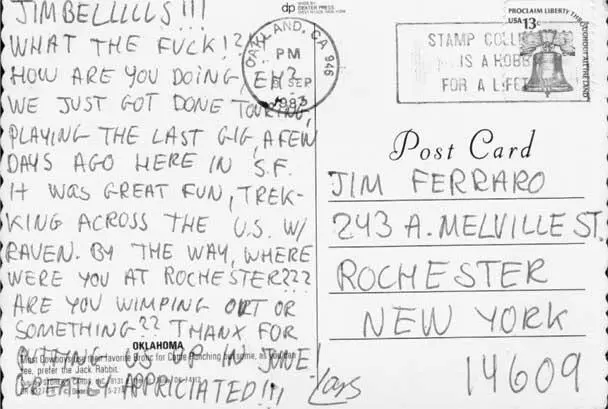 JIMBELLLLLS !!!
WHAT THE FUCK!?
HOW ARE YOU DOING EH?
WE JUST GOT DONE TOURING,
PLAYING THE LAST GIG, A FEW
DAYS AGO HERE IN S.F.
IT WAS GREAT FUN, TREK-
KING ACROSS THE U.S. W/
RAVEN. BY THE WAY, WHERE
WERE YOU AT ROCHESTER???
ARE YOU WIMPING OUT OR
SOMETHING?? THANX FOR
PUTTING US UP IN JUNE
GREATLY APPRICIATED!!! Lars
OKLAHOMA
Most Cowboys their favorite Bronc for Cattle Ranching but some, as you can
see, prefer the Jack Rabbit.
dp
MADE BY
DEXTER PRESS
OAKLAND, CA 946
PM
SEP
1983
STAMP COLL
IS A HOBB
FOR A LIFET
PROCLAIM LIBERTY THROUGHOUT ALL THE LAND
USA 13c
Post Card
JIM FERRARO
243 A. MELVILLE ST.
ROCHESTER
NEW YORK
14609